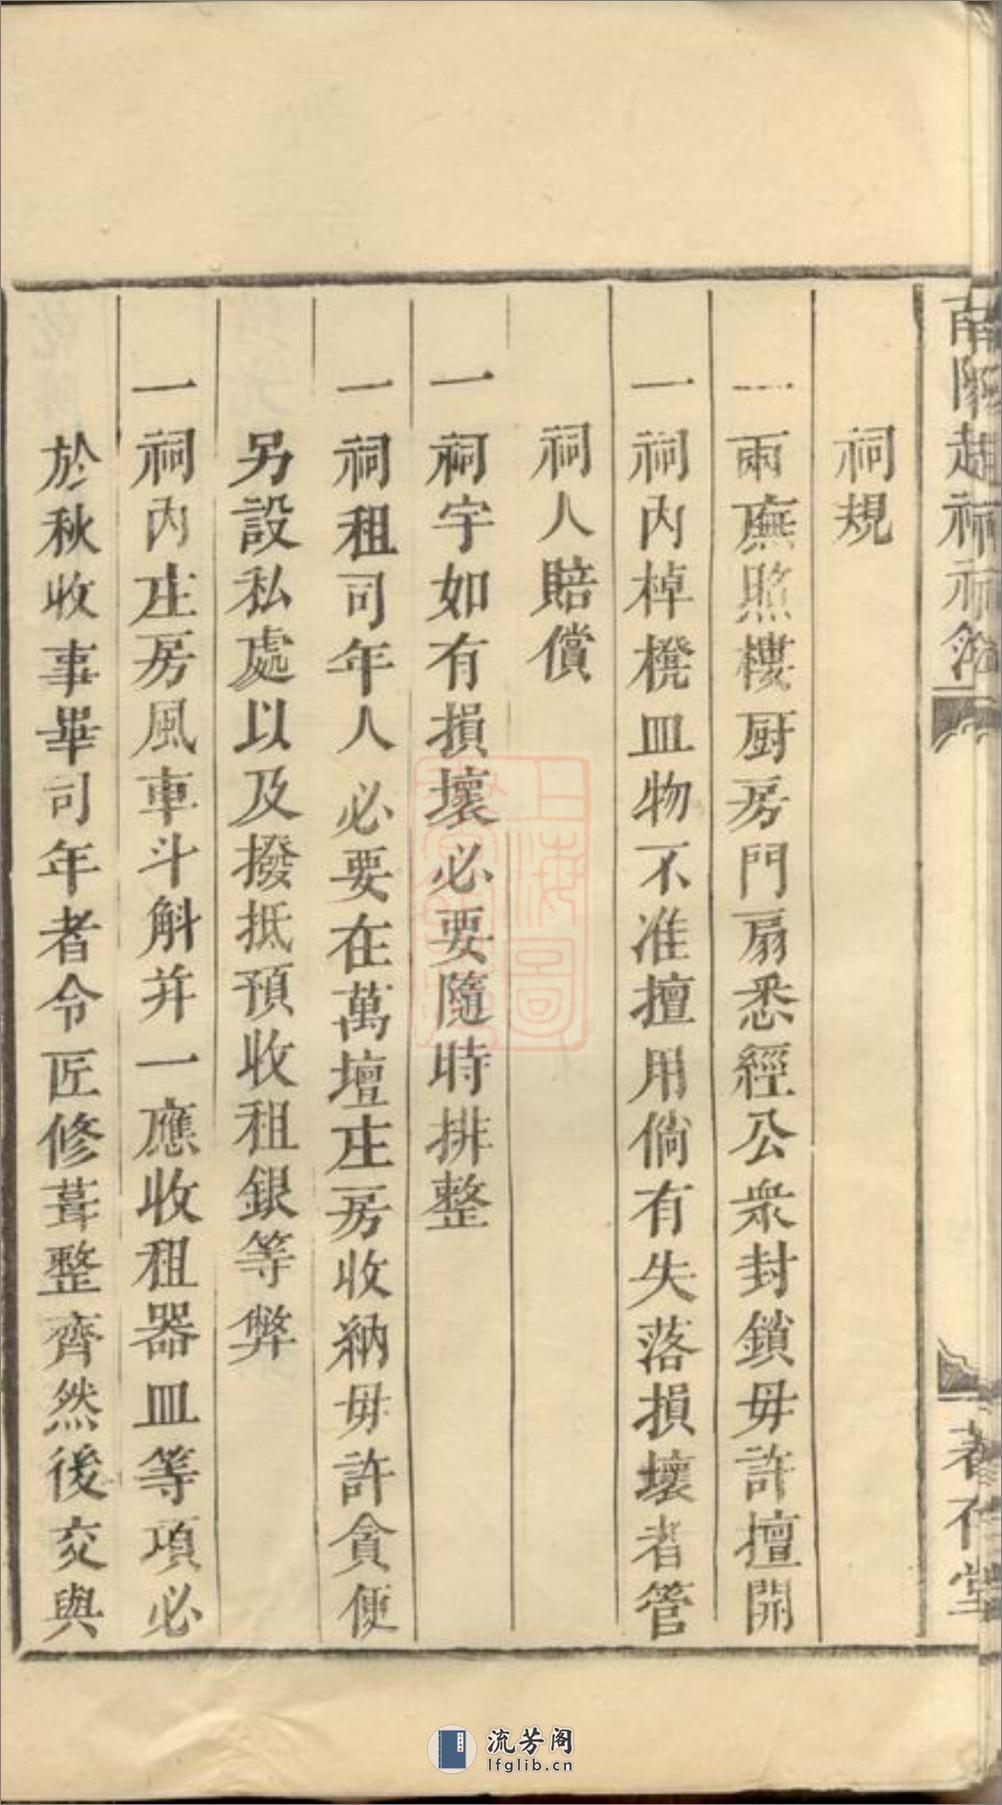 祠規
一兩廡照樓厨房門扇悉經公衆封鎖毋許擅開
一祠內棹櫈皿物不准擅用倘有失落損壞者管
祠人賠償
一祠宇如有損壞必要隨時排整
一祠租司年人必要在萬壇庄房收納毋許貪便
另設私處以及撥抵預收租銀等弊
一祠內庄房風車斗斛并一應收租器皿等項必
於秋收事畢司年者令匠修葺整齊然後交與
上海圖
流芳阁
lfglib.cn